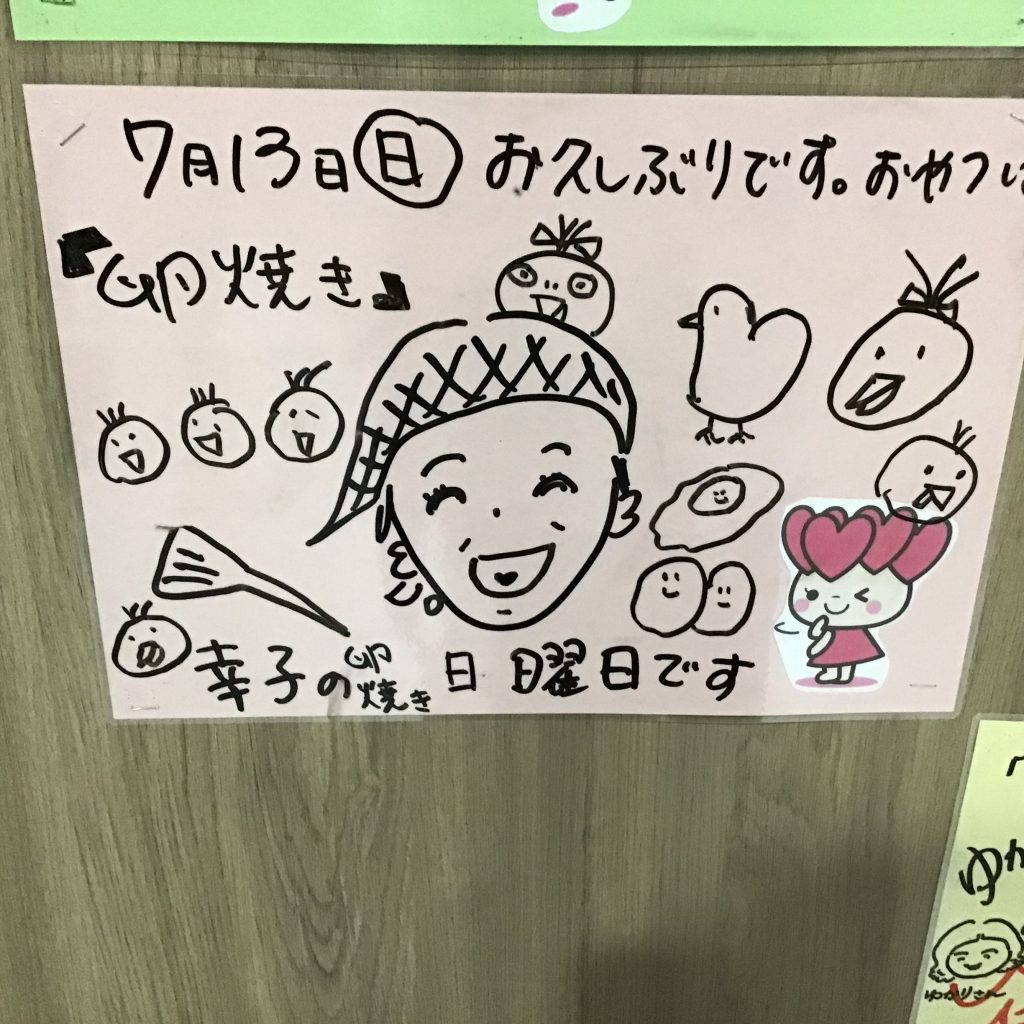 7月13日(日) お久しぶりです。おやつに
『卵焼き』
幸子の卵焼き日 日曜日です
ゆか
ゆかりさん